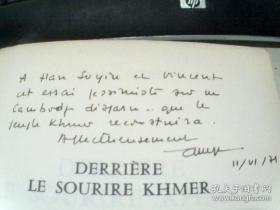 A Han Suyin et Vincent
cet essai pessimiste sur un
Cambodge disparu.. que le
peuple Khmer reconstruira.
Affectueusement
11/VI/71
DERRIÈRE
LE SOURIRE KHMER
hp